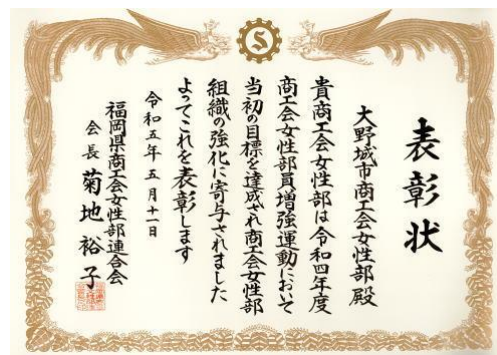 表彰状
大野城市商工会女性部殿
貴商工会女性部は令和四年度
商工会女性部員増強運動において
当初の目標を達成され商工会女性部
組織の強化に寄与されました
よってこれを表彰します
令和五年五月十一日
福岡県商工会女性部連合会
会長 菊地裕子
S